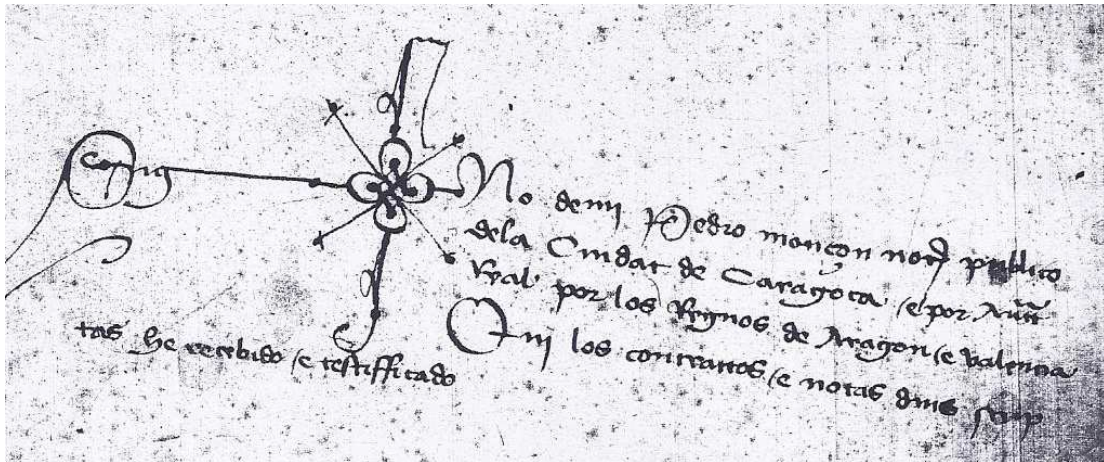 Sig No de mi Pedro monçon not publico
dela Ciudat de Caragoça e por Auct
Real por los Regnos de Aragon e valencia
Qui los contractos e notas
tas he recebido e testifficado